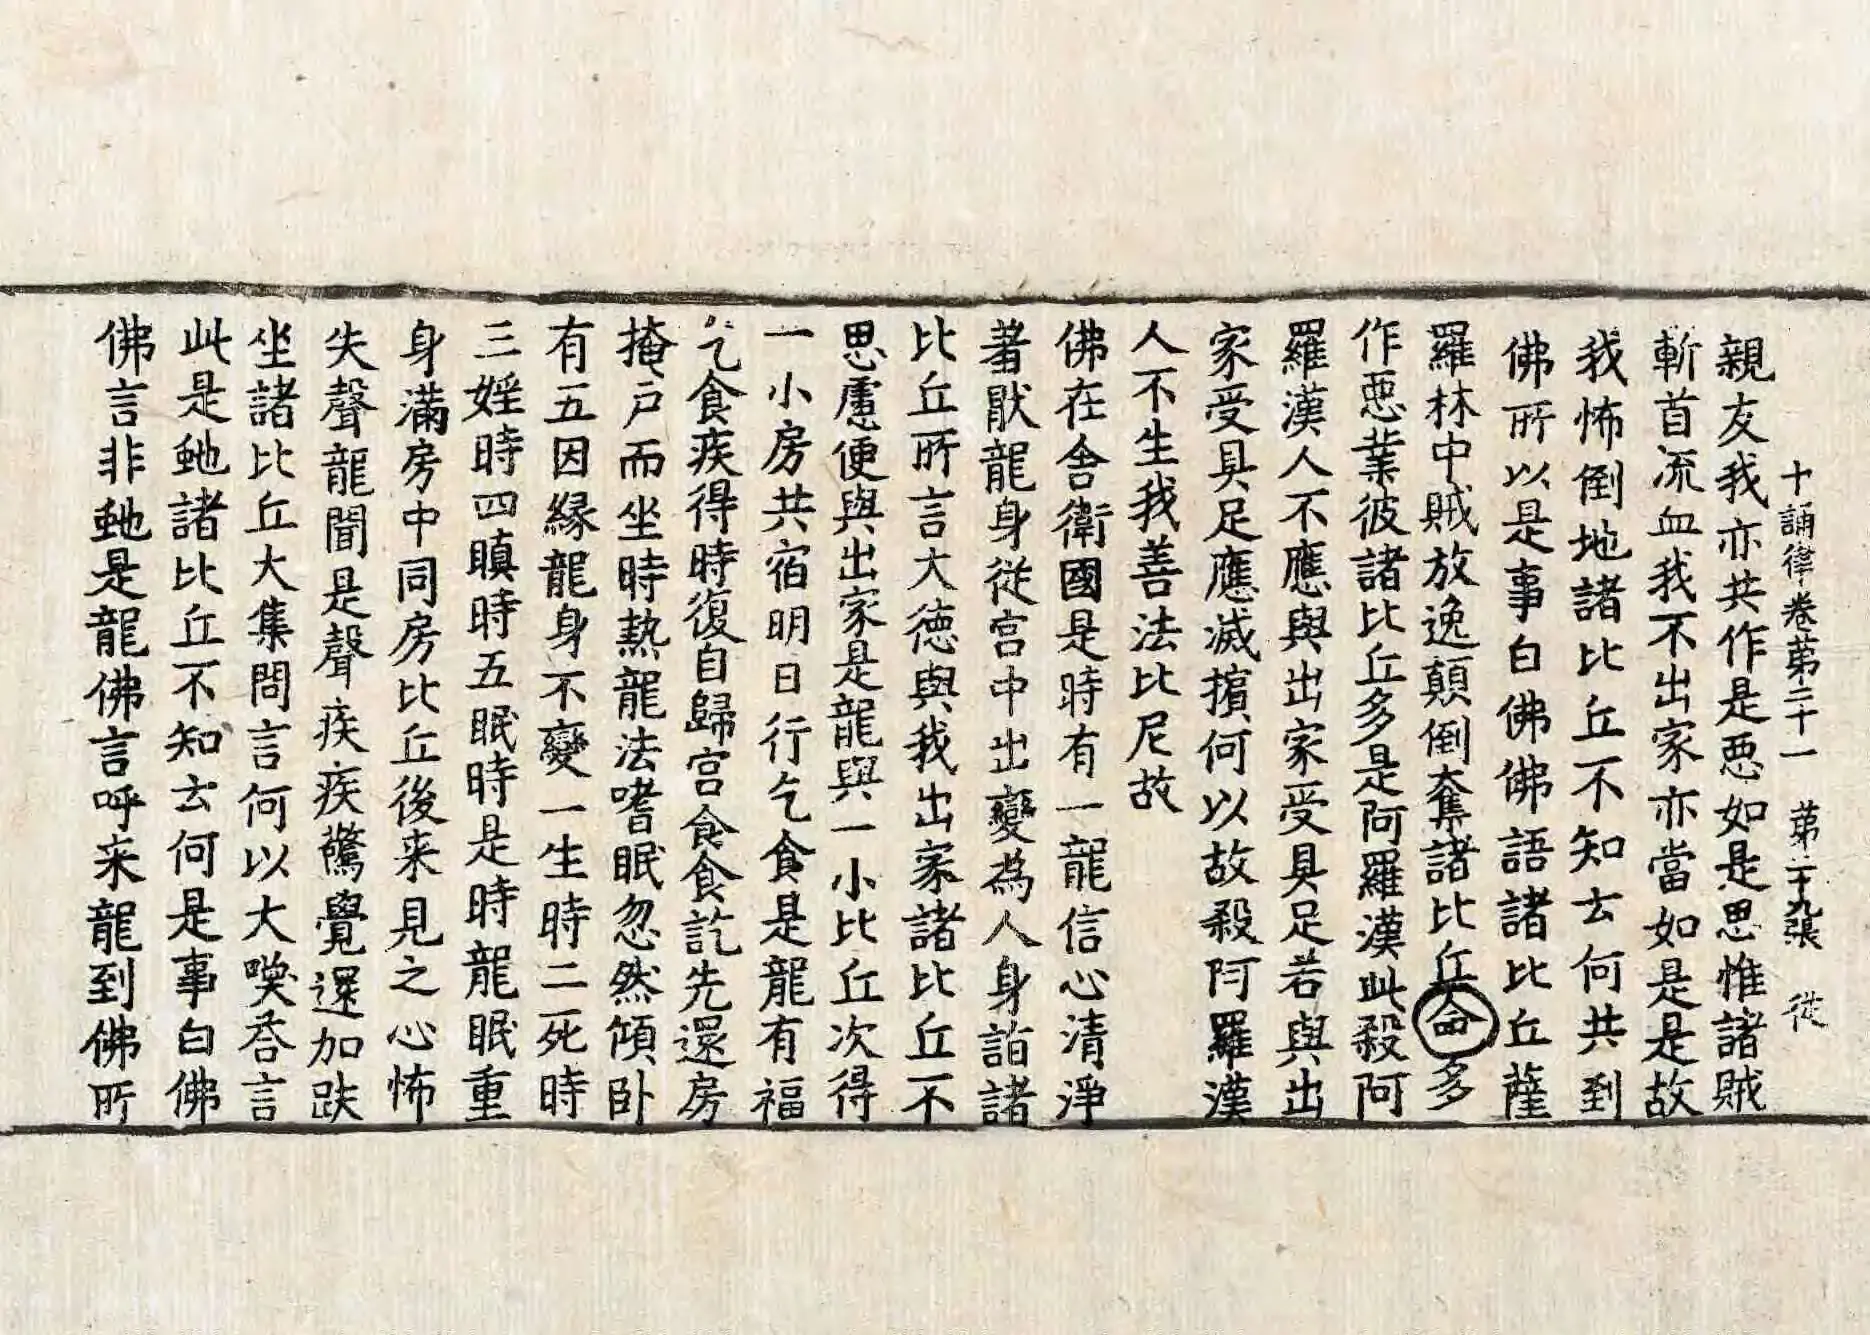 十誦律卷苐二十一 苐二十九張 従
親友我亦共作是惡如是思惟諸賊
斬首流血我不出家亦當如是是故
我怖倒地諸比丘不知云何共到
佛所以是事白佛佛語諸比丘薩
羅林中賊放逸顛倒奪諸比丘命多
作惡業彼諸比丘多是阿羅漢此殺阿
羅漢人不應與出家受具足若與出
家受具足應滅擯何以故殺阿羅漢
人不生我善法比尼故
佛在舎衛國是時有一龍信心清淨
著猒龍身從宮中出變為人身詣諸
比丘所言大徳與我出家諸比丘不
思慮便與出家是龍與一小比丘次得
一小房共宿明日行乞食是龍有福
乞食疾得時復自歸宮食食訖先還房
掩户而坐時熱龍法嗜眠忽然傾卧
有五因縁龍身不變一生時二死時
三婬時四瞋時五眠時是時龍眠重
身滿房中同房比丘後来見之心怖
失聲龍聞是聲疾疾驚覺還加趺
坐諸比丘大集問言何以大喚荅言
此是虵諸比丘不知云何是事白佛
佛言非虵是龍佛言呼来龍到佛所